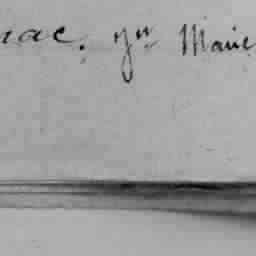 nac. yn Marie